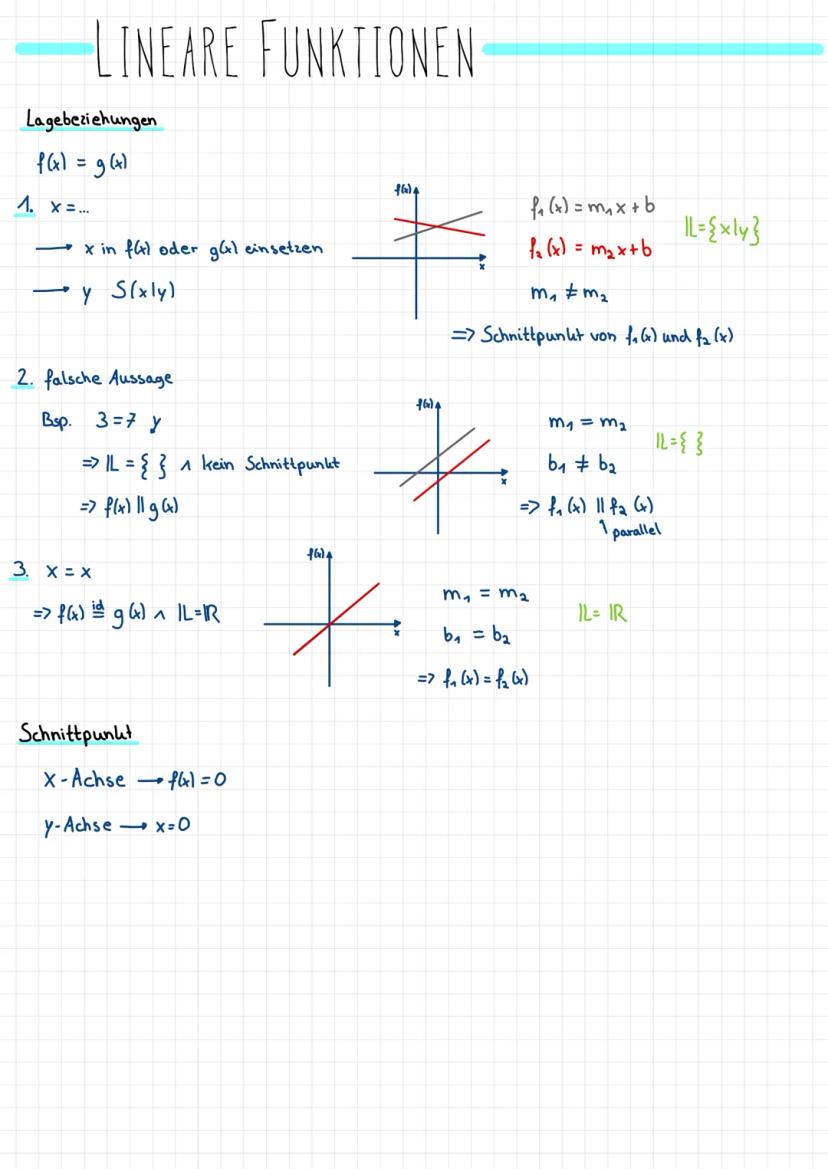 LINEARE FUNKTIONEN
Lagebeziehungen
f(x) = g(x)
1. x = ...
→ x in f(x) oder g(x) einsetzen
→ y S(x|y)
f(x)
x
f₁(x) = m₁x + b
f₂(x) = m₂x + b
𝕃 = {x|y}
m₁ ≠ m₂
=> Schnittpunkt von f₁(x) und f₂(x)
2. falsche Aussage
Bsp. 3 = 7 y
=> 𝕃 = { } ∧ kein Schnittpunkt
=> f(x) || g(x)
f(x)
x
m₁ = m₂
b₁ ≠ b₂
𝕃 = { }
=> f₁(x) || f₂(x)
↑ parallel
3. x = x
=> f(x) id= g(x) ∧ 𝕃 = ℝ
f(x)
x
m₁ = m₂
b₁ = b₂
𝕃 = ℝ
=> f₁(x) = f₂(x)
Schnittpunkt
x-Achse → f(x) = 0
y-Achse → x = 0